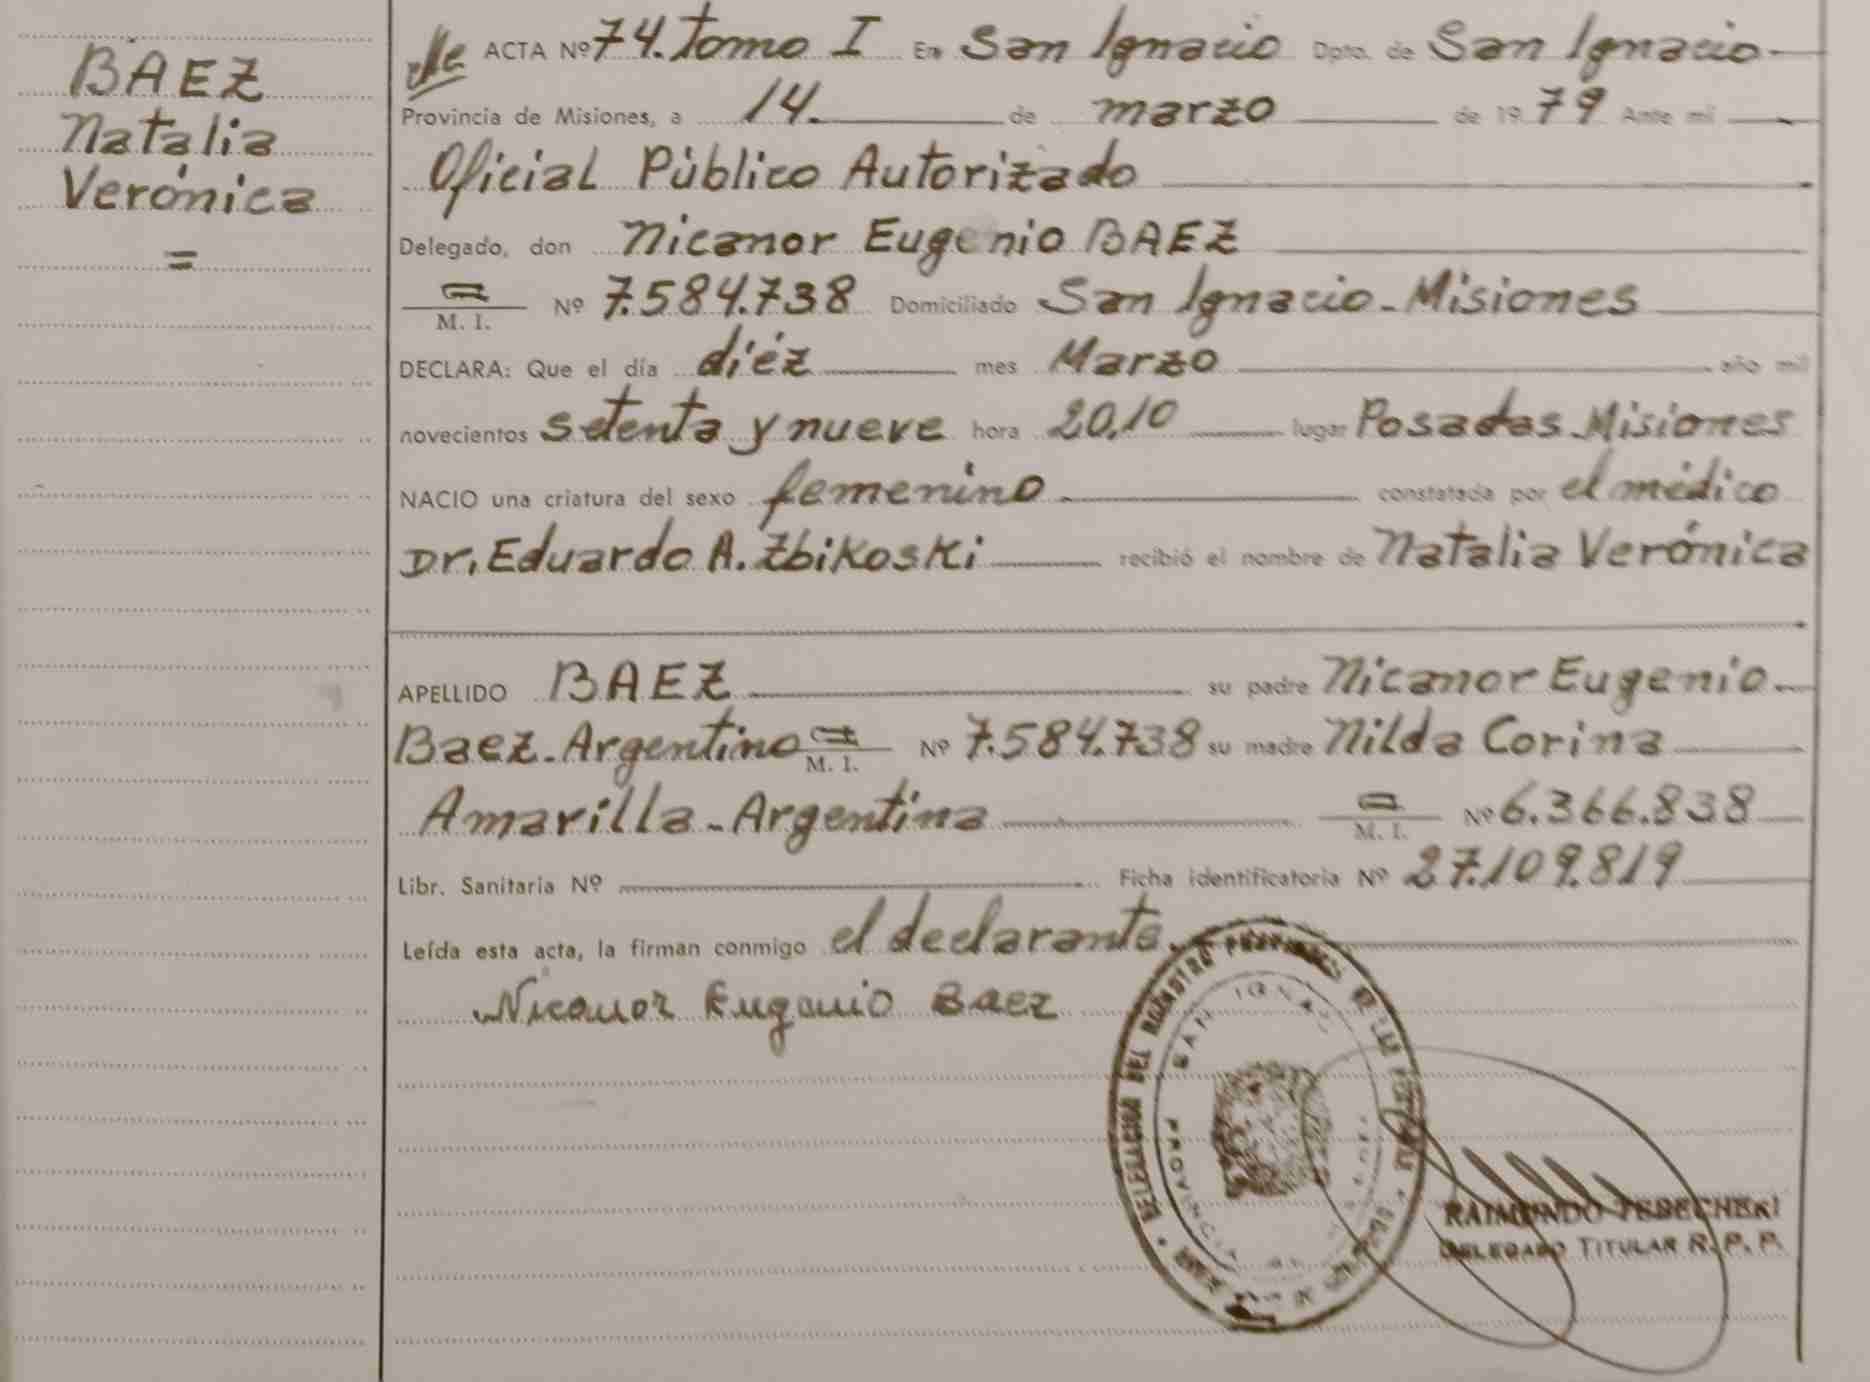 BAEZ
Natalia
Verónica
=
ACTA Nº 74. Tomo I En San Ignacio Dpto. de San Ignacio
Provincia de Misiones, a 14. de marzo de 1979 Ante mi
Oficial Público Autorizado
Delegado, don Nicanor Eugenio BAEZ
M. I. Nº 7.584.738 Domiciliado San Ignacio - Misiones
DECLARA: Que el día diéz mes Marzo año mil
novecientos setenta y nueve hora 20,10 lugar Posadas - Misiones
NACIO una criatura del sexo femenino constatada por el médico
Dr. Eduardo A. Zbikoski recibió el nombre de Natalia Verónica
APELLIDO BAEZ su padre Nicanor Eugenio
Baez - Argentino M. I. Nº 7.584.738 su madre Nilda Corina
Amarilla - Argentina M. I. Nº 6.366.838
Libr. Sanitaria Nº Ficha identificatoria Nº 27.109.819
Leída esta acta, la firman conmigo el declarante.
Nicanor Eugenio Baez
DEL REGISTRO
SAN IGNACIO
PROVINCIA DE
RAIMUNDO
DELEGADO TITULAR R. P. P.